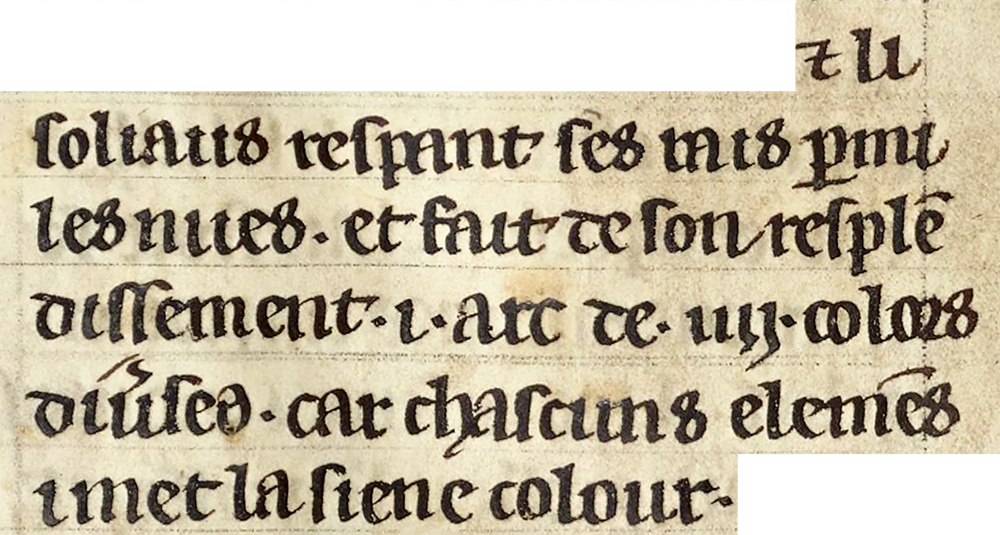 ⁊ li
soliaus respant ses rais ꝑmi
les nues. et fait de son resplē
dissement .i. arc de .iiij. colors
diũses. car chascuns elemēs
i met la siene colour.